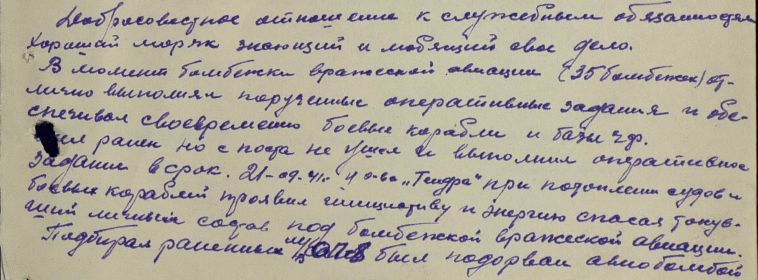 Добросовестное отношение к служебным обязанностям
Хороший моряк знающий и любящий свое дело.
В момент бомбежки вражеской авиации (35 бомбежек) от-
лично выполнял порученные оперативные задания и обе-
спечивал своевременно боевые корабли и базы ЧФ.
ранен но с поста не ушел и выполнил оперативное
задание в срок. 21-09-41г. у о-ва "Тендра" при потоплении судов и
боевых кораблей проявил инициативу и энергию спасая тонув-
ший личный состав под бомбежкой вражеской авиации.
Подбирая раненных был подорван авиобомбой